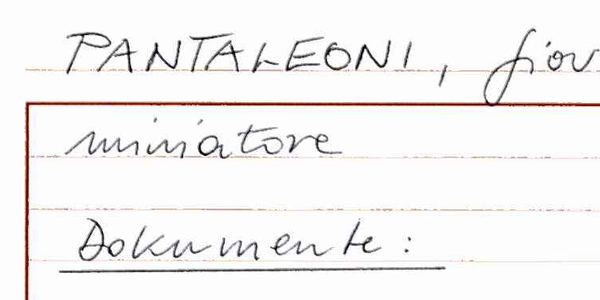 PANTALEONI, Giov
miniatore
Dokumente: